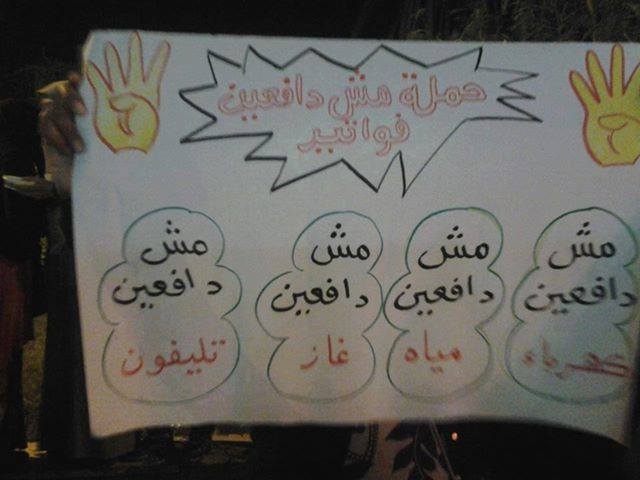 حملة مش دافعين
فواتير
مش
دافعين
كهرباء
مش
دافعين
مياه
مش
دافعين
غاز
مش
دافعين
تليفون